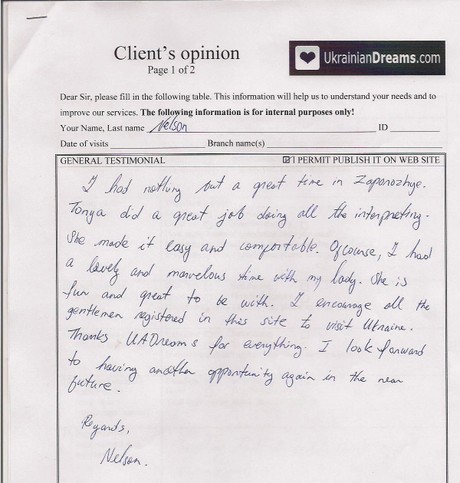 Client's opinion
UkrainianDreams.com
Page 1 of 2
Dear Sir, please fill in the following table. This information will help us to understand your needs and to
improve our services. The following information is for internal purposes only!
Your Name, Last name Nelson ID
Date of visits Branch name(s)
GENERAL TESTIMONIAL ☑ I PERMIT PUBLISH IT ON WEB SITE
I had nothing but a great time in Zaporozhye.
Tonya did a great job doing all the interpreting.
She made it easy and comfortable. Ofcourse, I had
a lovely and marvelous time with my lady. She is
fun and great to be with. I encourage all the
gentlemen registered in this site to visit Ukraine.
Thanks UADreams for everything. I look forward
to having another opportunity again in the near
future.
Regards,
Nelson.